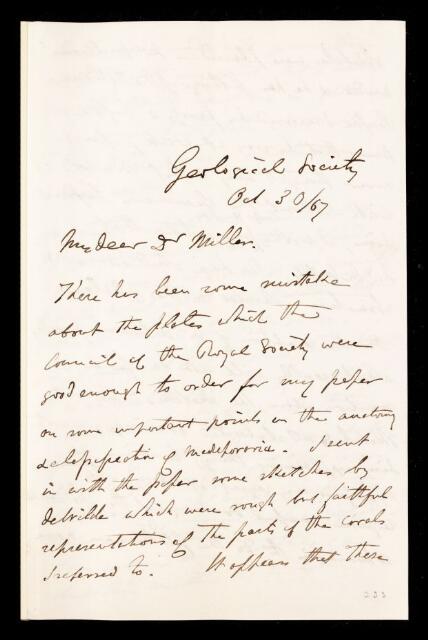 Geological Society
Oct 30/67
My dear Dr Miller.
There has been some mistake
about the plates which the
Council of the Royal Society were
good enough to order for my paper
on some important points in the anatomy
& classification of madreporaria. I sent
in with the paper some sketches by
DeWilde which were rough but faithful
representations of the parts of the corals
I referred to. It appears that these
233